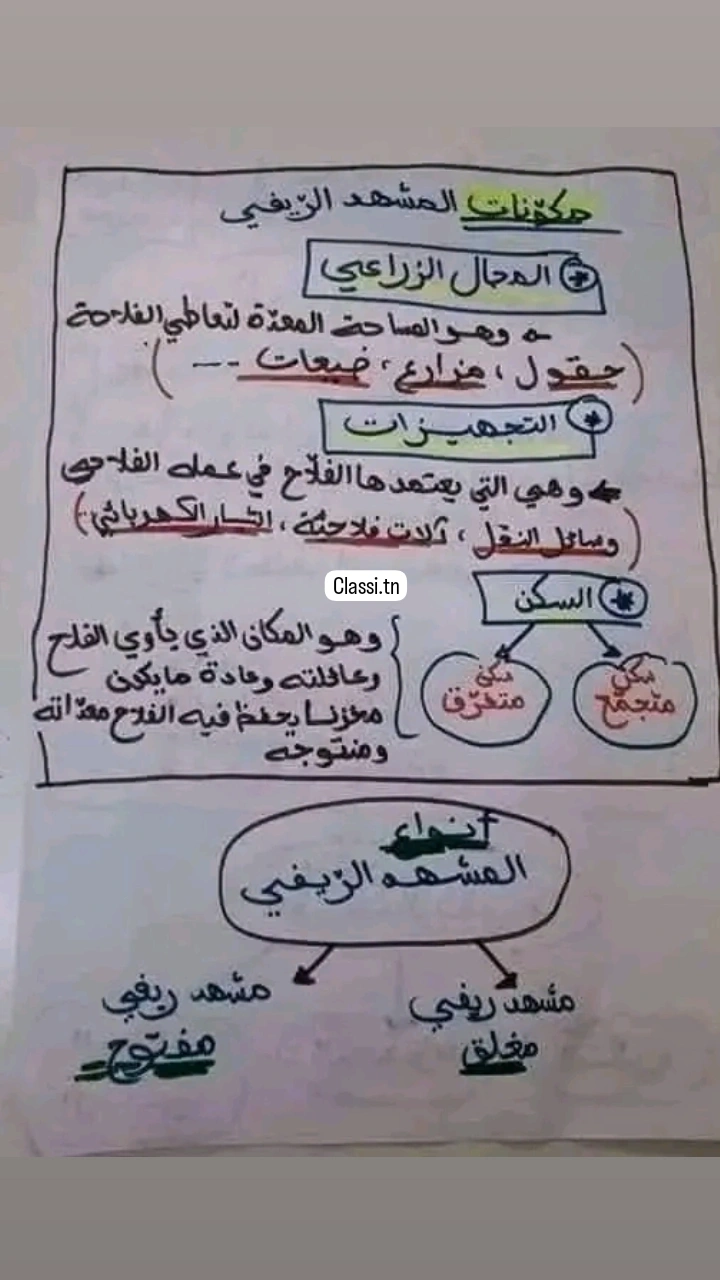 مكوّنات المشهد الرّيفي
* المجال الزراعي
وهو المساحة المعدّة لتعاطي الفلاحة
(حقول، مزارع، ضيعات ---)
* التجهيزات
وهي التي يعتمدها الفلّاح في عمله الفلاحي
(وسائل النقل، آلات فلاحيّة، التيار الكهربائي..)
Classi.tn
* السكن
سكن متجمّع
سكن متفرّق
وهو المكان الذي يأوي الفلاح
وعائلته وعادة ما يكون
مخزنا يحفظ فيه الفلاح معدّاته
ومنتوجه
أنواع
المشهد الرّيفي
مشهد ريفي
مغلق
مشهد ريفي
مفتوح